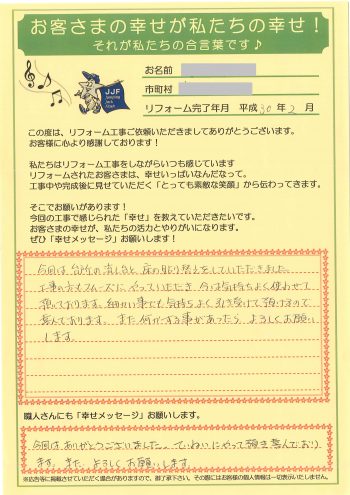 お客さまの幸せが私たちの幸せ！
それが私たちの合言葉です♪
JJF
お名前
市町村
リフォーム完了年月 平成30年2月
この度は、リフォーム工事ご依頼いただきましてありがとうございます。
お客様に心より感謝しております！
私たちはリフォーム工事をしながらいつも感じています
リフォームされたお客さまは、幸せいっぱいなんだなって。
工事中や完成後に見せていただく「とっても素敵な笑顔」から伝わってきます。
そこでお願いがあります！
今回の工事で感じられた「幸せ」を教えていただきたいです。
お客さまの幸せが、私たちの活力とやりがいになります。
ぜひ「幸せメッセージ」お願いします！
今回は台所の流し台と床の貼り替えをしていただきました。
工事の方もスムーズにやっていただき 今は気持ちよく使わせて
頂いております。細かい事でも気持ちよく引き受けて頂けるので
喜んでおります。また何かする事があったら よろしくお願い
します。
職人さんにも「幸せメッセージ」お願いします。
今回はありがとうございました。ていねいにやって頂き喜んでおり
ます。また よろしくお願いします。
※広告等に掲載させていただく場合がありますので、御了承下さい。その際にはお客様の個人情報は一切表示いたしません。